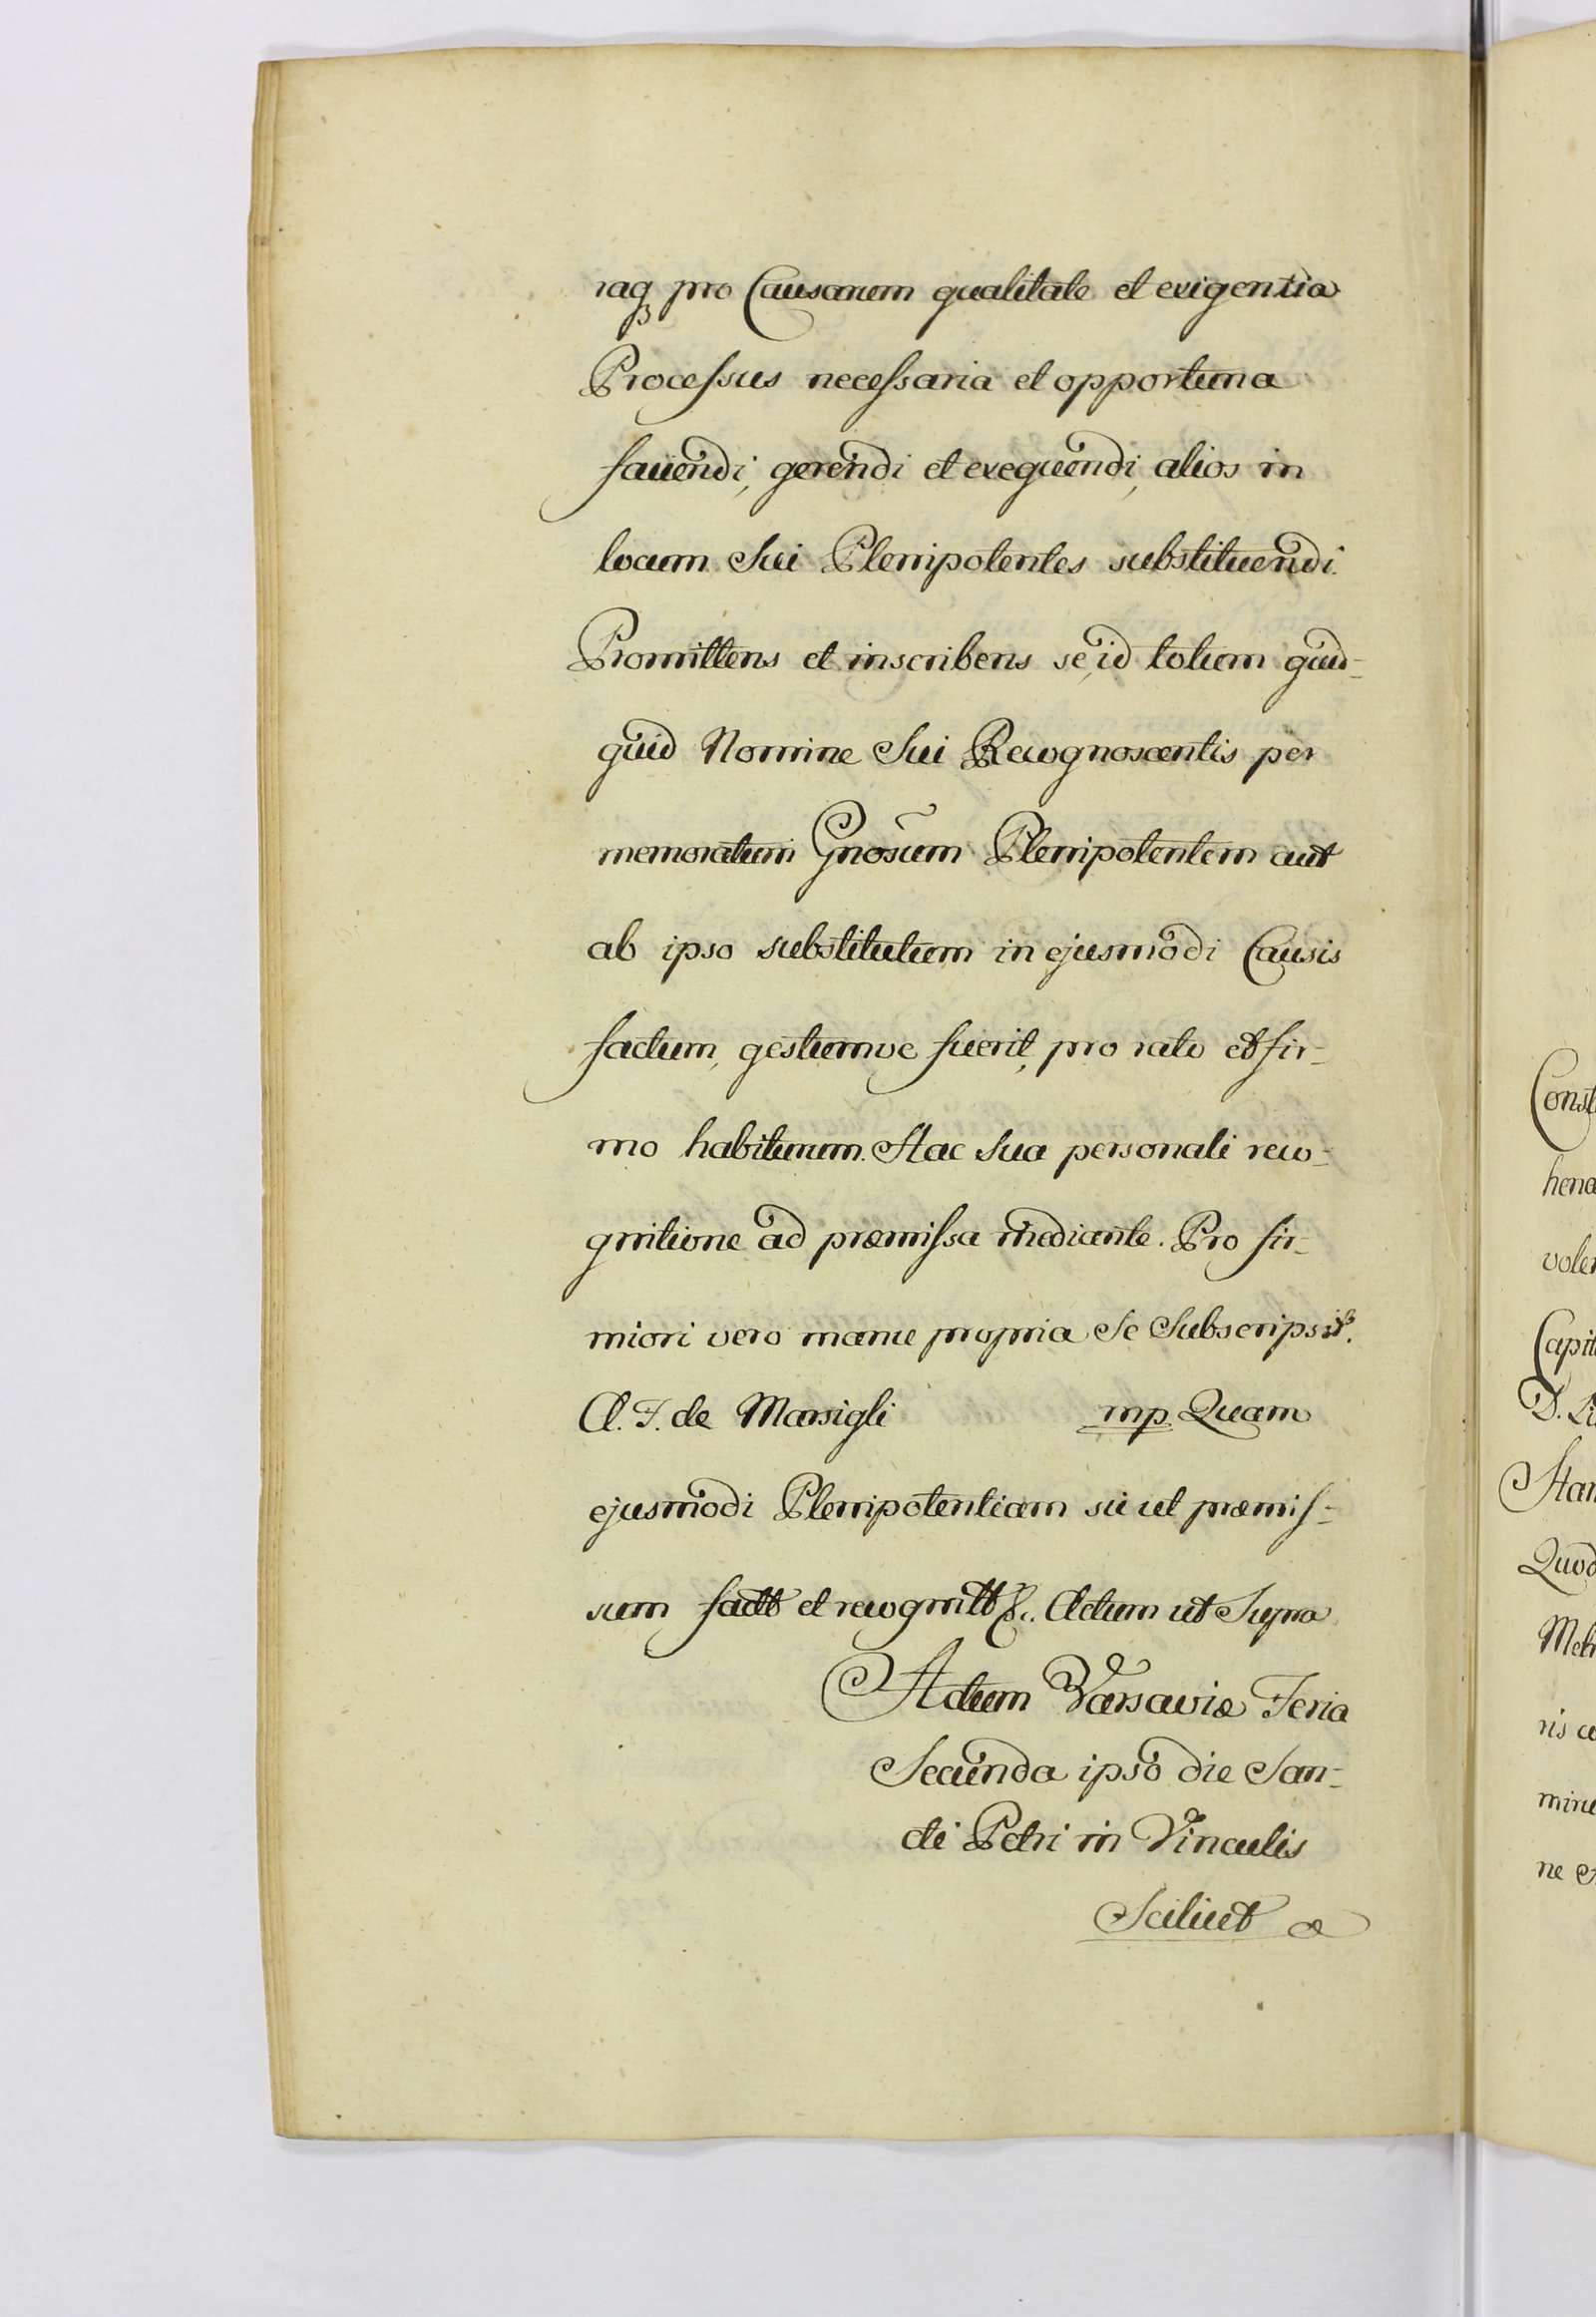 raq₃ pro Causarum qualitate et exigentia
Processus necessaria et opportuna
faciendi, gerendi et exequendi, alios in
locum Sui Plenipotentes substituendi.
Promittens et inscribens se, id totum quid-
quid Nomine Sui Recognoscentis per
memoratum Gnosum Plenipotentem aut
ab ipso substitutum in ejusmodi Causis
factum, gestumve fuerit, pro rato et fir-
mo habiturum. Hac Sua personali reco-
gnitione ad præmissa mediante. Pro fir-
miori vero manu propria Se Subscripsit.
A. F. de Marsigli mp. Quam
ejusmodi Plenipotentiam sic ut præmis-
sum facit et recognitt &. Actum ut Supra
Actum Varsaviæ Feria
Secunda ipso die San-
cti Petri in Vinculis
Scilicet a
Const
Capit
Quod